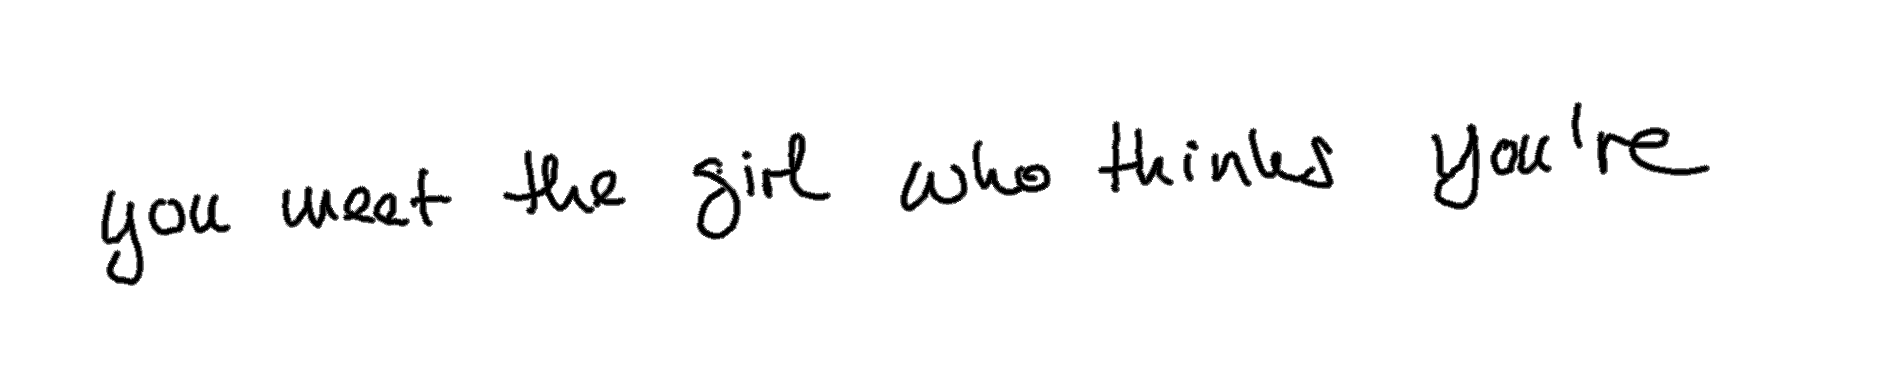 you meet the girl who thinks you're